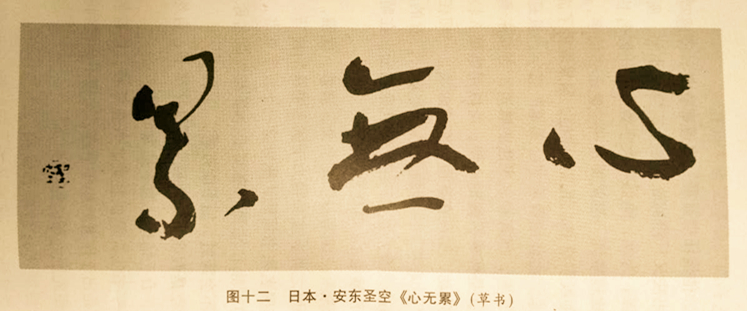 心無累
图十二 日本·安东圣空《心无累》(草书)